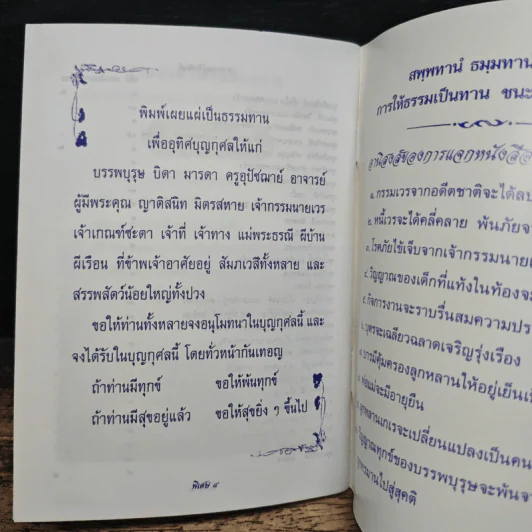 พิมพ์เผยแผ่เป็นธรรมทาน
เพื่ออุทิศบุญกุศลให้แก่
บรรพบุรุษ บิดา มารดา ครูอุปัชฌาย์ อาจารย์
ผู้มีพระคุณ ญาติสนิท มิตรสหาย เจ้ากรรมนายเวร
เจ้าเกณฑ์ชะตา เจ้าที่ เจ้าทาง แม่พระธรณี ผีบ้าน
ผีเรือน ที่ข้าพเจ้าอาศัยอยู่ สัมภเวสีทั้งหลาย และ
สรรพสัตว์น้อยใหญ่ทั้งปวง
ขอให้ท่านทั้งหลายจงอนุโมทนาในบุญกุศลนี้ และ
จงได้รับในบุญกุศลนี้ โดยทั่วหน้ากันเทอญ
ถ้าท่านมีทุกข์ ขอให้พ้นทุกข์
ถ้าท่านมีสุขอยู่แล้ว ขอให้สุขยิ่ง ๆ ขึ้นไป
พิเศษ ๔
สพฺพทานํ ธมฺมทาน
การให้ธรรมเป็นทาน ชนะ
อานิสงส์ของการแจกหนังสือ
๑. กรรมเวรจากอดีตชาติจะได้ลบ
๒. หนี้เวรจะได้คลี่คลาย พ้นภัยจา
๓. โรคภัยไข้เจ็บจากเจ้ากรรมนายเ
๔. วิญญาณของเด็กที่แท้งในท้องจะ
๕. กิจการงานจะราบรื่นสมความปร
บุตรจะเฉลียวฉลาดเจริญรุ่งเรือง
บารมีคุ้มครองลูกหลานให้อยู่เย็นเป็
พ่อแม่จะมีอายุยืน
ลูกหลานเกเรจะเปลี่ยนแปลงเป็นคน
วิญญาณทุกข์ของบรรพบุรุษจะพ้นจา
ทรมานไปสู่สุคติ